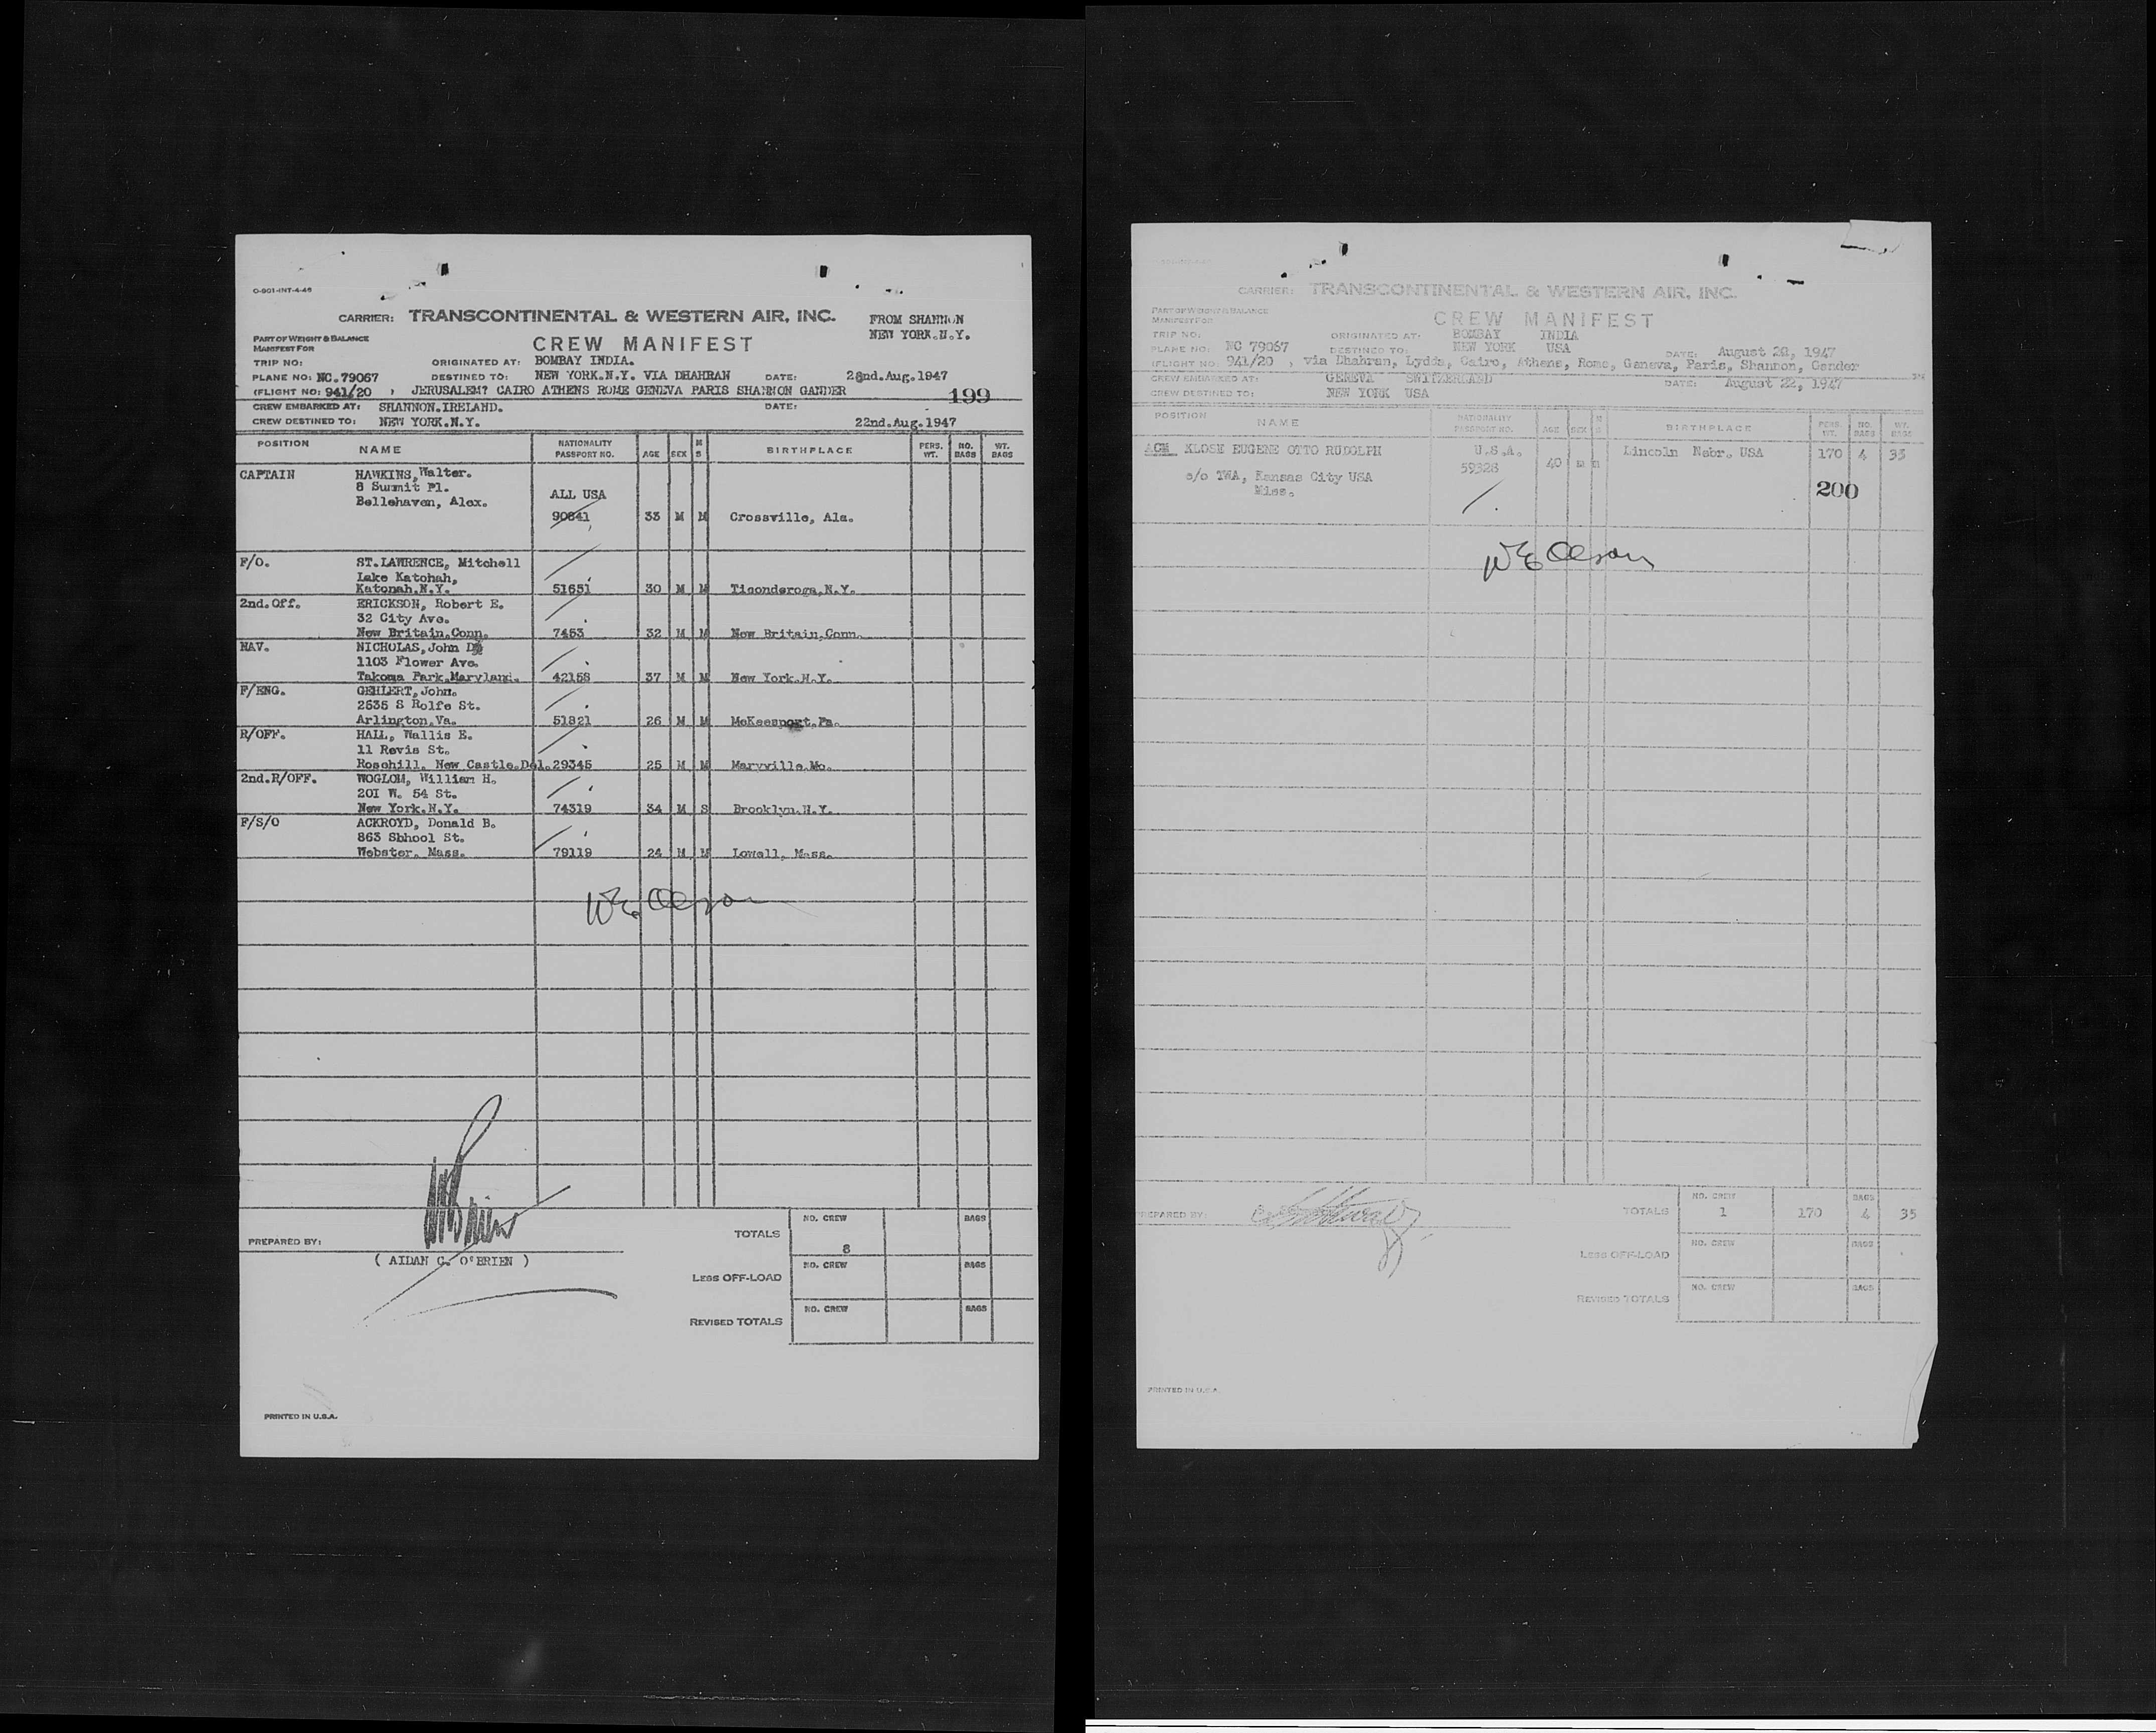 O-801-INT-4-46
CARRIER: TRANSCONTINENTAL & WESTERN AIR, INC.
FROM SHANNON
NEW YORK.N.Y.
PART OF WEIGHT & BALANCE
MANIFEST FOR
CREW MANIFEST
TRIP NO: ORIGINATED AT: BOMBAY INDIA.
PLANE NO: NC.79067 DESTINED TO: NEW YORK.N.Y. VIA DHAHRAN DATE: 22nd.Aug.1947
(FLIGHT NO: 941/20 , JERUSALEM? CAIRO ATHENS ROME GENEVA PARIS SHANNON GANDER
199
CREW EMBARKED AT: SHANNON.IRELAND. DATE:
CREW DESTINED TO: NEW YORK.N.Y. 22nd.Aug.1947
POSITION NAME NATIONALITY PASSPORT NO. AGE SEX M S BIRTHPLACE PERS. WT. NO. BAGS WT. BAGS
CAPTAIN HAWKINS, Walter.
8 Summit Pl.
Bellehaven, Alex. ALL USA
90841 33 M M Crossville, Ala.
F/O. ST.LAWRENCE, Mitchell
Lake Katohah,
Katonah.N.Y. 51651 30 M M Ticonderoga,N.Y.
2nd.Off. ERICKSON, Robert E.
32 City Ave.
New Britain.Conn. 7453 32 M M New Britain.Conn.
NAV. NICHOLAS, John
1103 Flower Ave.
Takoma Park.Maryland. 42158 37 M M New York.N.Y.
F/ENG. GEHLERT, John.
2535 S Rolfe St.
Arlington.Va. 51821 26 M M McKeesport.Pa.
R/OFF. HALL, Wallis E.
11 Revis St.
Rosehill. New Castle.Del. 29345 25 M M Maryville.Mo.
2nd.R/OFF. WOGLOM, William H.
201 W. 54 St.
New York.N.Y. 74319 34 M S Brooklyn.N.Y.
F/S/O ACKROYD, Donald B.
863 Sbhool St.
Webster. Mass. 79119 24 M M Lowell, Mass.
WE Olson
TOTALS NO. CREW 8 BAGS
PREPARED BY:
( AIDAN C. O'BRIEN )
LESS OFF-LOAD NO. CREW BAGS
REVISED TOTALS NO. CREW BAGS
PRINTED IN U.S.A.
CARRIER: TRANSCONTINENTAL & WESTERN AIR, INC.
PART OF WEIGHT & BALANCE
MANIFEST FOR
CREW MANIFEST
TRIP NO: ORIGINATED AT: BOMBAY INDIA
PLANE NO: NC 79067 DESTINED TO: NEW YORK USA DATE: August 22, 1947
(FLIGHT NO: 941/20 , via Dhahran, Lydda, Cairo, Athens, Rome, Geneva, Paris, Shannon, Gander
CREW EMBARKED AT: GENEVA SWITZERLAND DATE: August 22, 1947
CREW DESTINED TO: NEW YORK USA
POSITION NAME NATIONALITY PASSPORT NO. AGE SEX M S BIRTHPLACE PERS. WT. NO. BAGS WT. BAGS
ACM KLOSE EUGENE OTTO RUDOLPH U.S.A. Lincoln Nebr. USA 170 4 35
59328 40 m m
c/o TWA, Kansas City USA
Miss.
200
WE Olson
PREPARED BY:
TOTALS NO. CREW 1 170 BAGS 4 35
LESS OFF-LOAD NO. CREW BAGS
REVISED TOTALS NO. CREW BAGS
PRINTED IN U.S.A.